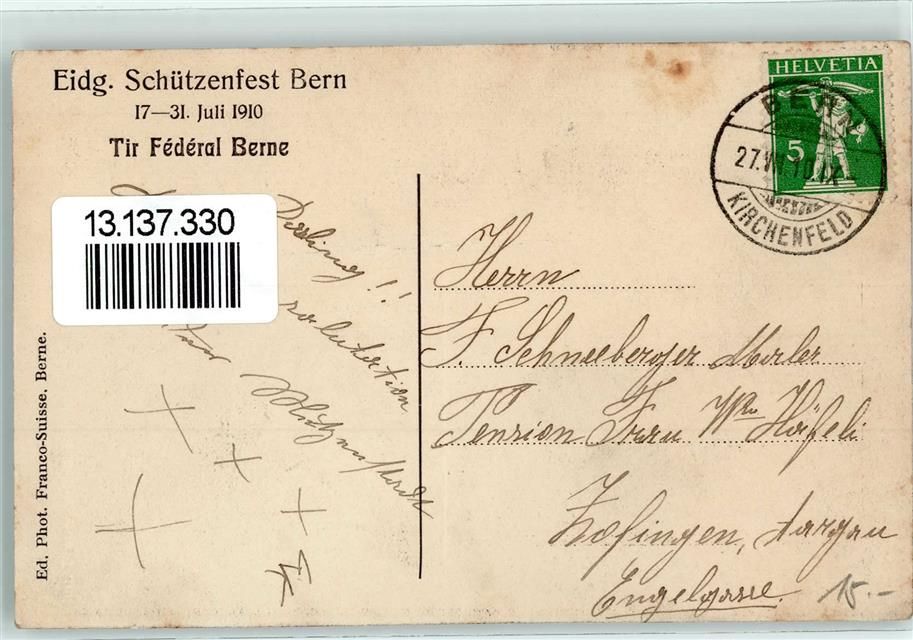 Eidg. Schützenfest Bern
17—31. Juli 1910
Tir Fédéral Berne
13.137.330
HELVETIA
5
BERN
27.VII.10.IX
KIRCHENFELD
Darling!!
salutation
Herrn
F. Schneeberger Maler
Pension Frau Wwe Häfeli
Zofingen, Aargau
Engelgasse.
15.-
Ed. Phot. Franco-Suisse. Berne.